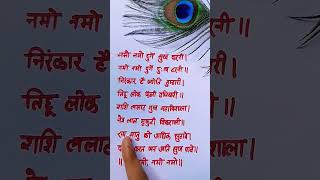 नमो नमो दुर्गे सुख करनी।
नमो नमो दुर्गे दुःख हरनी॥
निरंकार है ज्योति तुम्हारी।
तिहू लोक फैली उजियारी॥
शशि ललाट मुख महाविशाला।
नेत्र लाल भृकुटी विकराली॥
मातु को अधिक सुहावे।
दरश करत जन अति सुख पावे॥
नमो, नमो॥
नमो नमो
निरंका
तिहू लोक
शशि ललाट
नेत्र लाल
शशि ललाट